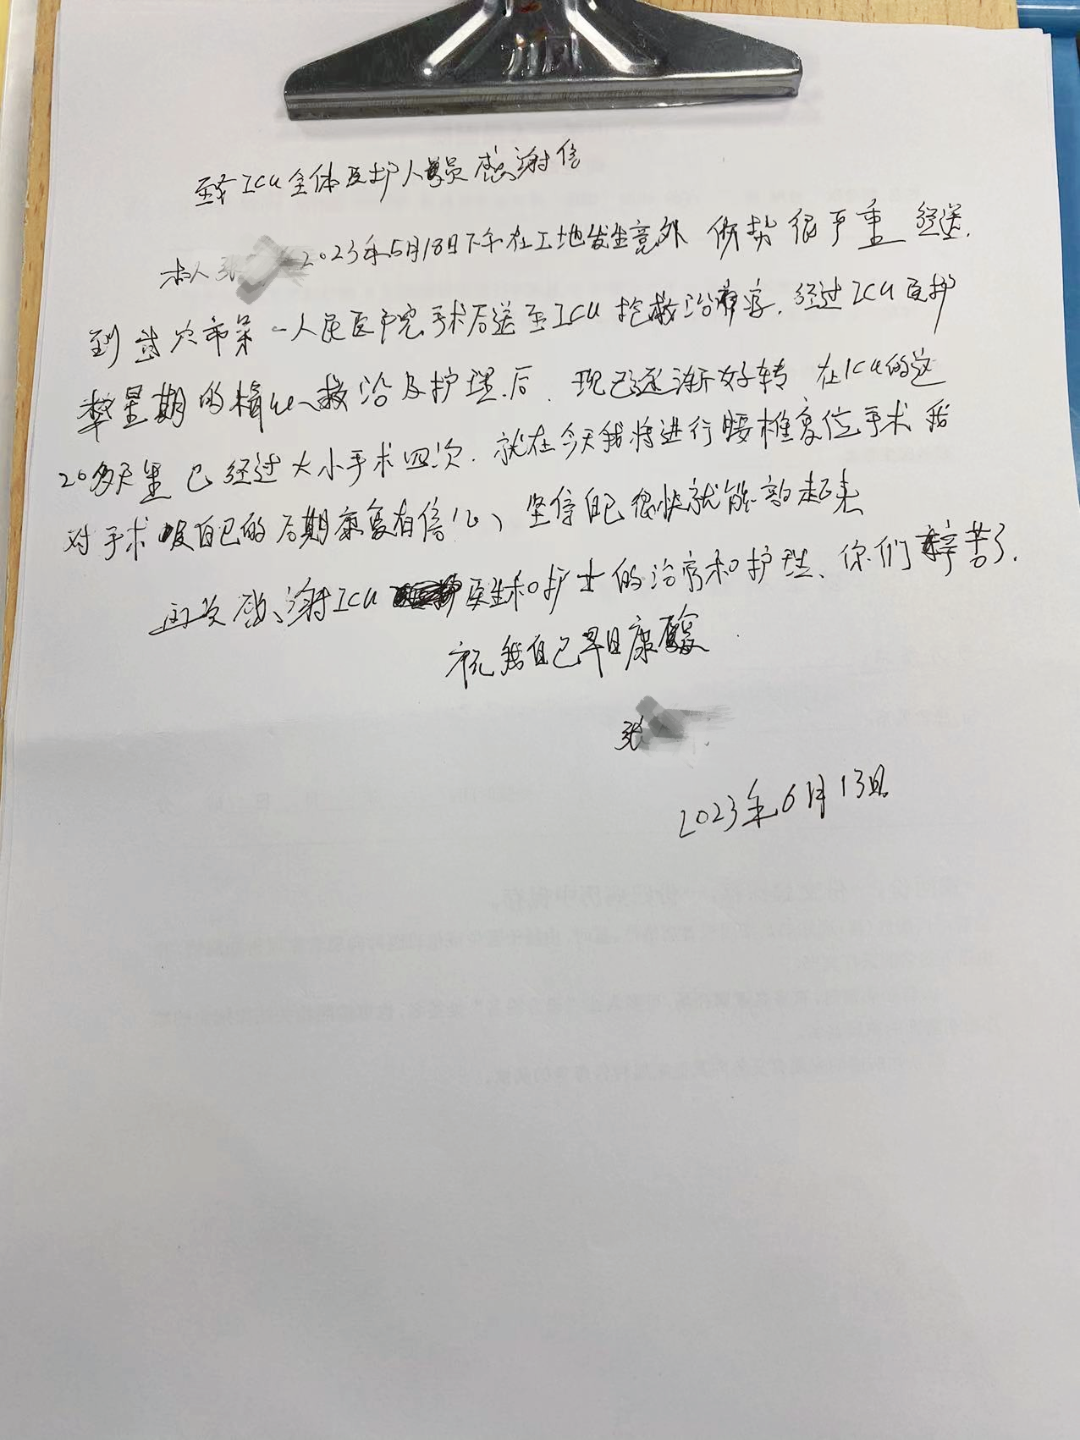 致ICU全体医护人员感谢信
本人张 2023年5月18日下午在工地发生意外 伤势很严重 经送
到 市第一人民医院手术后送至ICU抢救治疗. 经过ICU医护
星期的精心救治及护理后. 现已逐渐好转 在ICU的这
20多天里 已经过大小手术四次. 就在今天我将进行腰椎复位手术 我
对手术及自己的后期康复有信心、坚信自己很快就能 起来
再次感谢ICU医生和护士的治疗和护理、你们辛苦了.
祝我自己早日康复
张
2023年6月13日